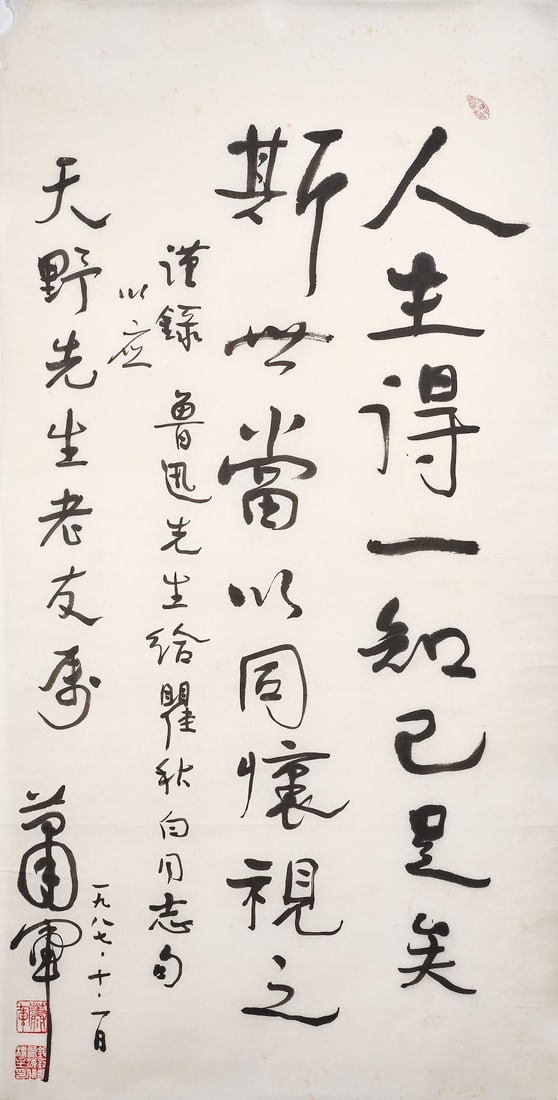 人生得一知己足矣
斯世當以同懷視之
謹録 魯迅先生給瞿秋白同志句
以應
天野先生老友属
一九八七·十·一日
蕭軍